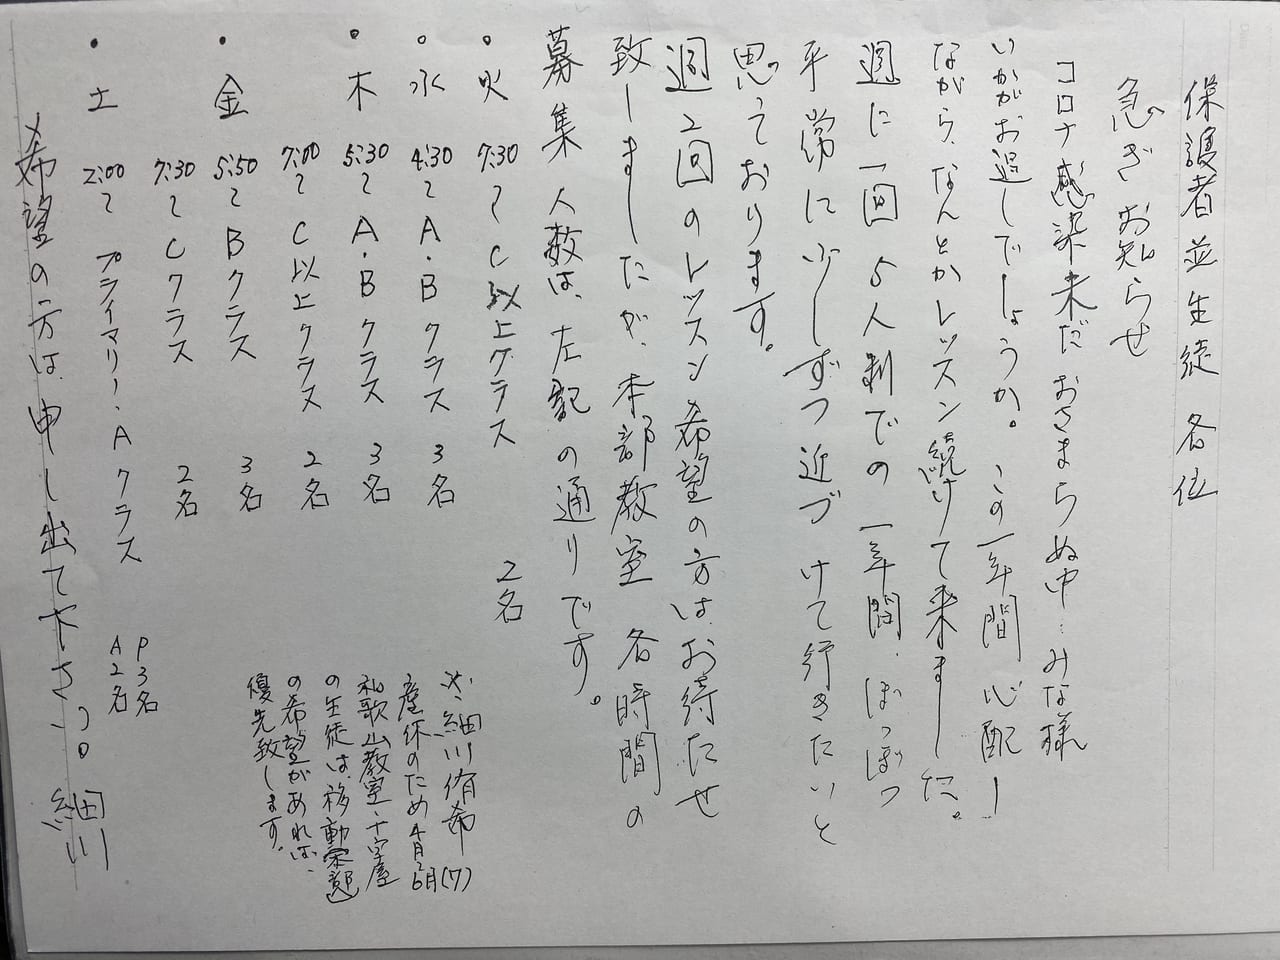 保護者並生徒 各位
急ぎお知らせ
コロナ感染未だおさまらぬ中…みな様
いかがお過しでしょうか。この一年間心配し
ながら、なんとかレッスン続けて来ました。
週に一回 5人制での一年間、ぼつぼつ
平常に少しずつ近づけて行きたいと
思っております。
週2回のレッスン希望の方は、お待たせ
致しましたが、本部教室 各時間の
募集人数は、左記の通りです。
• 火 7:30〜 C以上クラス 2名
• 水 4:30〜 A・Bクラス 3名
• 木 5:30〜 A・Bクラス 3名
7:00〜 C以上クラス 2名
• 金 5:50〜 Bクラス 3名
7:30〜 Cクラス 2名
• 土 2:00〜 プライマリー・Aクラス P3名
A2名
※希望の方は、申し出て下さい。 細川
※細川侑希
産休のため4月〜6月(7)
和歌山教室・十字屋
の生徒は移動
の希望があれば、
優先致します。